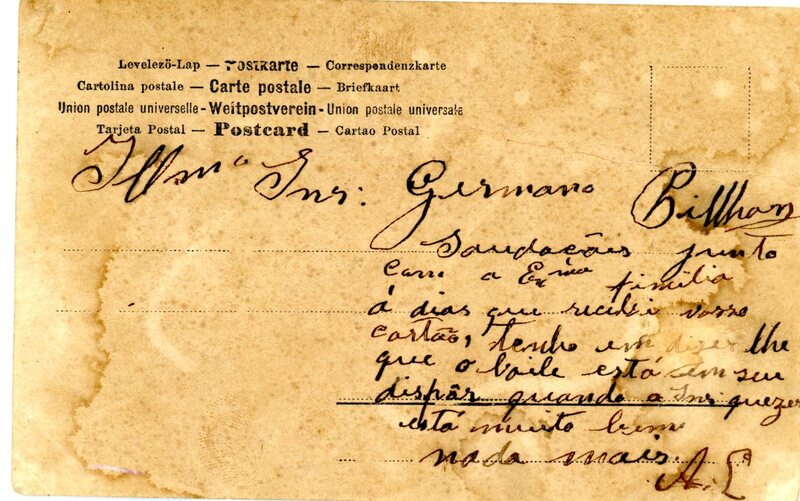 Levelezö-Lap — Postkarte — Correspondenzkarte
Cartolina postale — Carte postale — Briefkaart
Union postale universelle - Weltpostverein - Union postale universale
Tarjeta Postal — Postcard — Cartao Postal
Illmo Snr: Germano Billhan
Saudações junto
com a Exma familia
á dias que recibi vosso
cartão, tenho em dizer lhe
que o baile está em seu
dispôr quando o Snr quezer
está muito bem
nada mais.